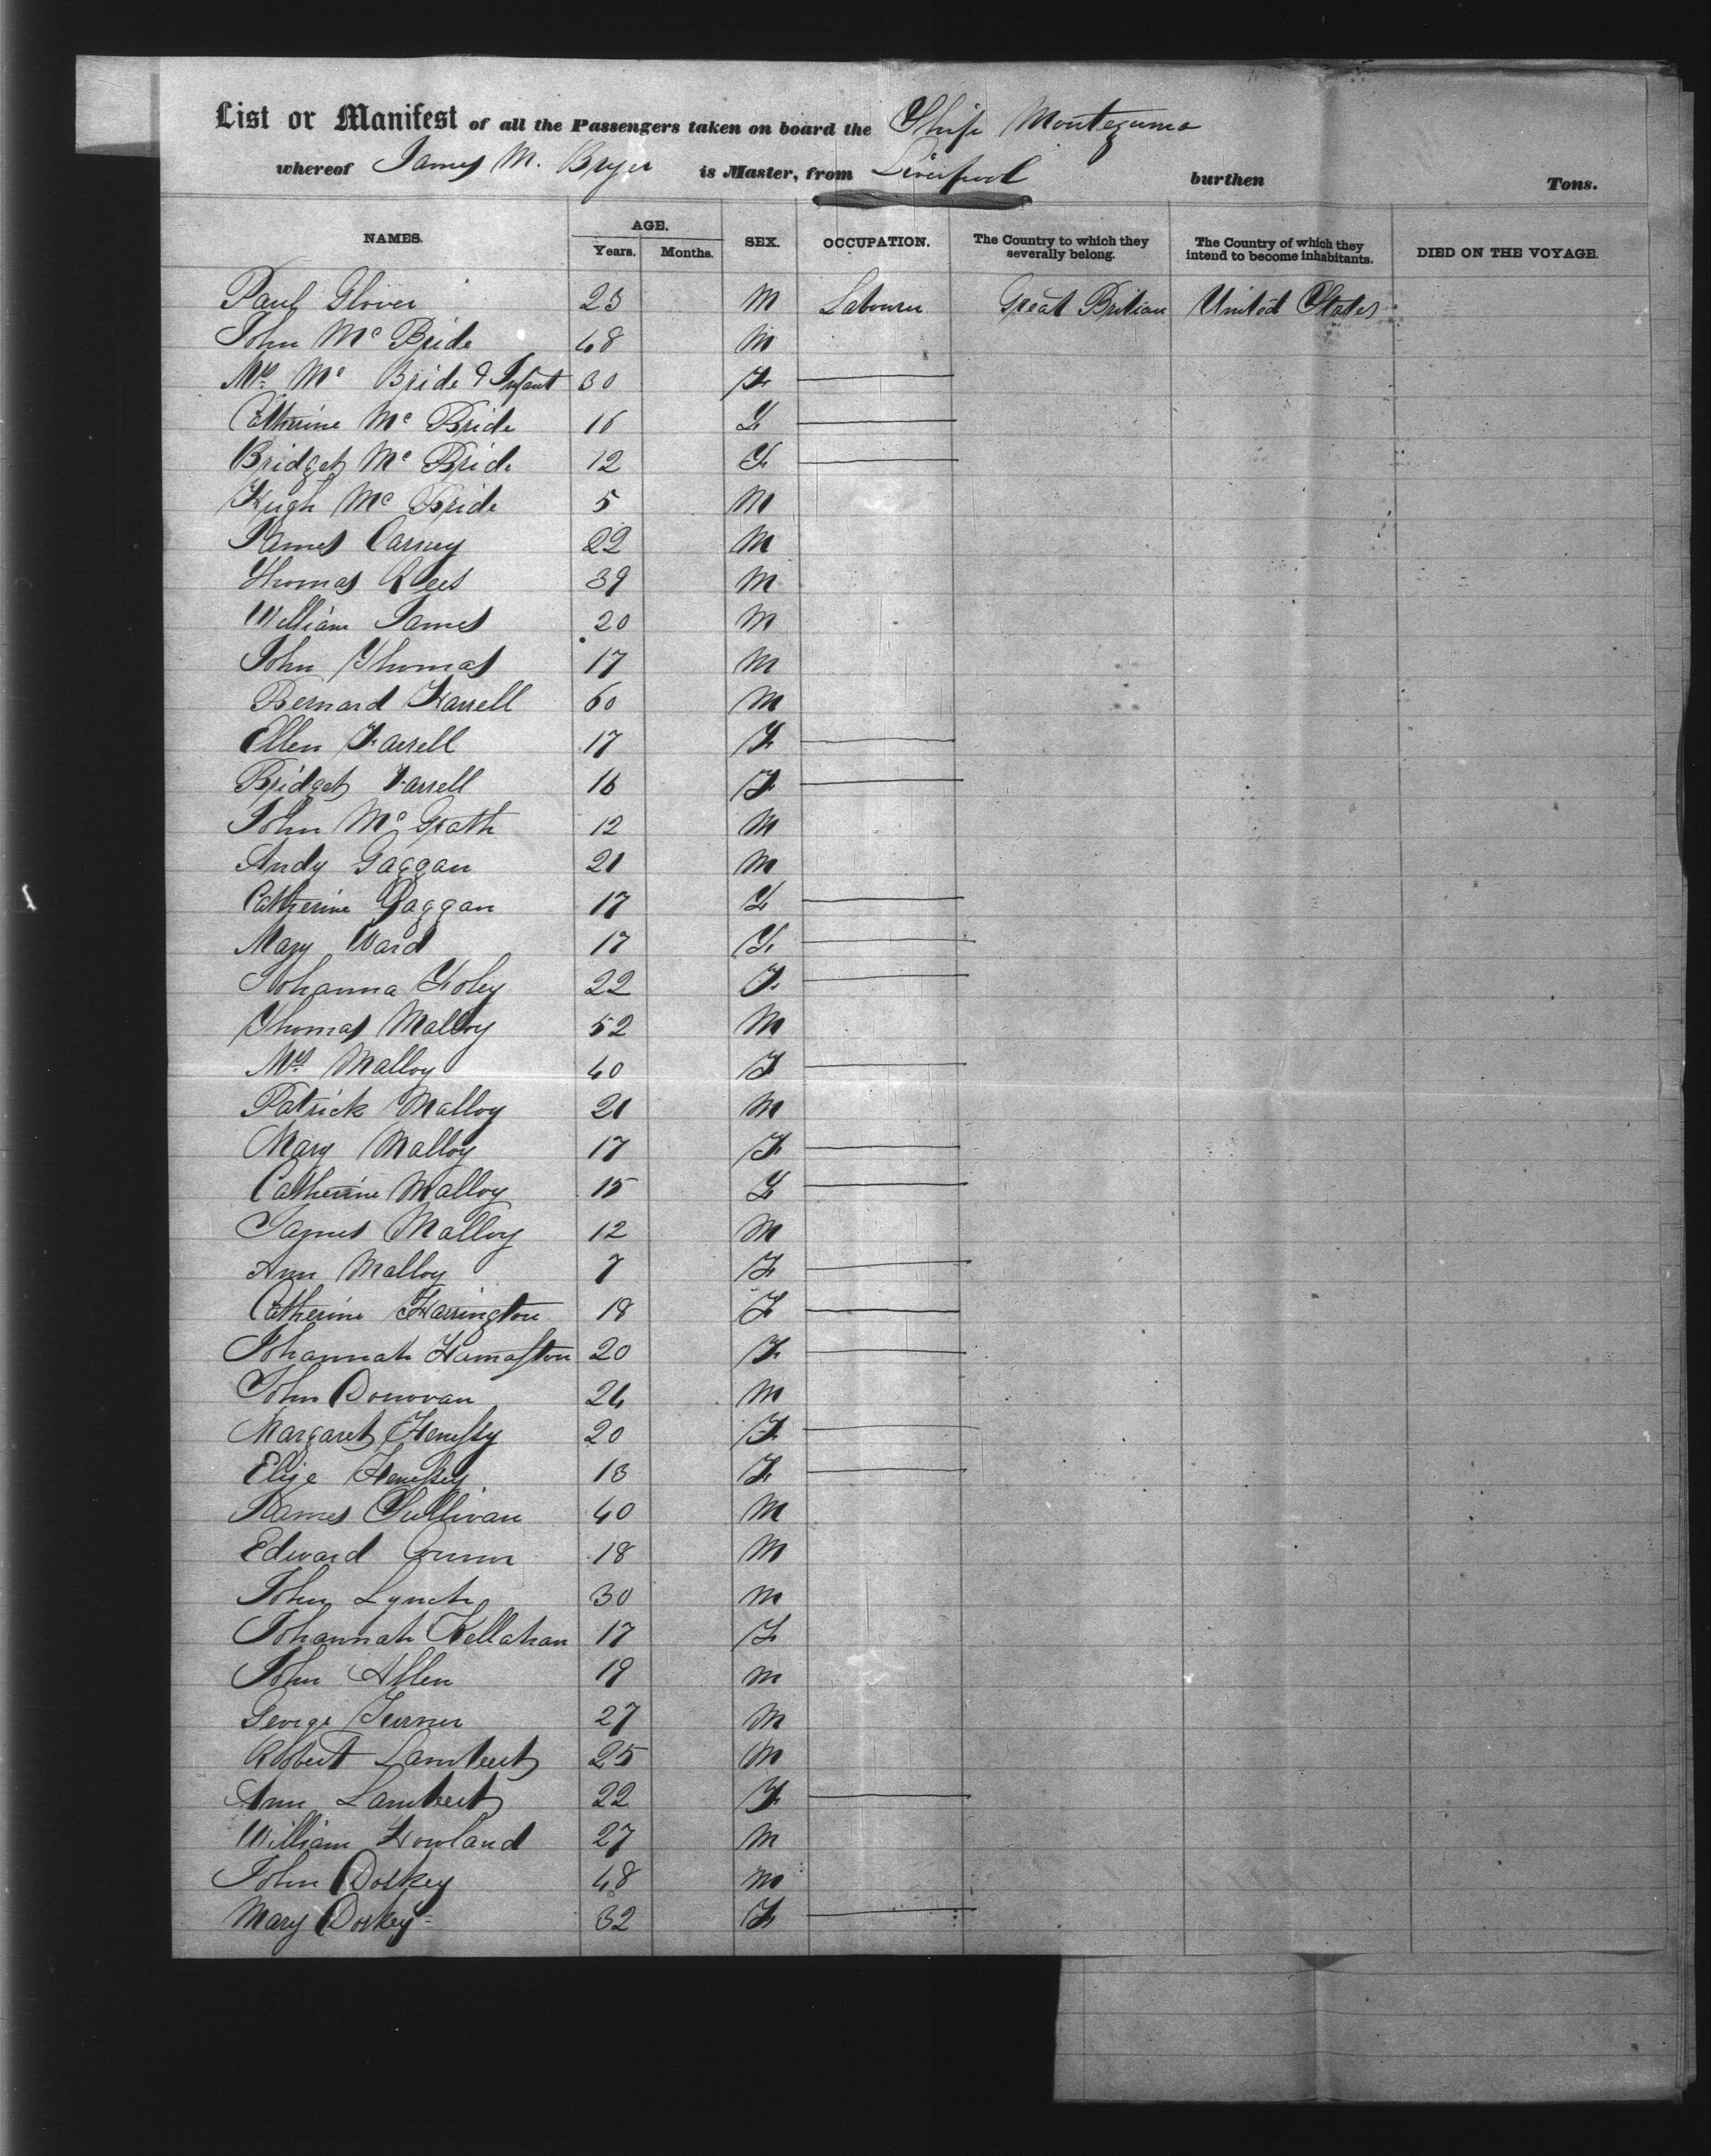 List or Manifest of all the Passengers taken on board the Ship Montezuma
whereof James M. Bryer is Master, from Liverpool burthen Tons.
NAMES. AGE. Years. Months. SEX. OCCUPATION. The Country to which they severally belong. The Country of which they intend to become inhabitants. DIED ON THE VOYAGE.
Paul Glover 23 M Labourer Great Britian United States
John Mc Bride 48 M
Mrs Mc Bride & Infant 30 F
Catherine Mc Bride 16 F
Bridget Mc Bride 12 F
Hugh Mc Bride 5 M
James Carney 22 M
Thomas Rees 39 M
William James 20 M
John Thomas 17 M
Bernard Farrell 60 M
Ellen Farrell 17 F
Bridget Farrell 16 F
John Mc Grath 12 M
Andy Gaggan 21 M
Catherine Gaggan 17 F
Mary Ward 17 F
Johanna Foley 22 F
Thomas Malloy 52 M
Mrs Malloy 40 F
Patrick Malloy 21 M
Mary Malloy 17 F
Catherine Malloy 15 F
James Malloy 12 M
Ann Malloy 7 F
Catherine Harrington 18 F
Johannah 20 F
John Donovan 24 M
Margaret Henessy 20 F
Elize Henessy 13 F
James Sullivan 40 M
Edward Connor 18 M
John Lynch 30 M
Johannah Kellahan 17 F
John Allen 19 M
George Turner 27 M
Robert Lambert 25 M
Ann Lambert 22 F
William Howland 27 M
John Dorkey 48 M
Mary Dorkey 32 F